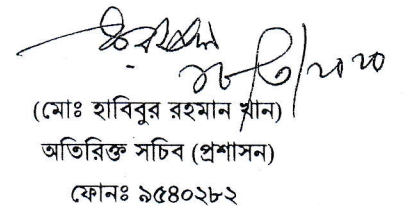 (মোঃ হাবিবুর রহমান খান)
অতিরিক্ত সচিব (প্রশাসন)
ফোনঃ ৯৫৪০২৮২